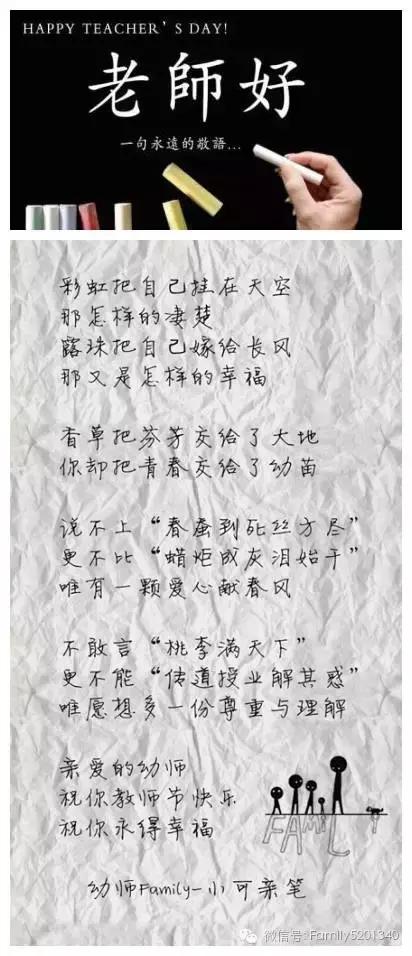 HAPPY TEACHER'S DAY!
老師好
一句永遠的敬語...
彩虹把自己挂在天空
那怎样的凄楚
露珠把自己嫁给长风
那又是怎样的幸福
香草把芬芳交给了大地
你却把青春交给了幼苗
说不上“春蚕到死丝方尽”
更不比“蜡炬成灰泪始干”
唯有一颗爱心献春风
不敢言“桃李满天下”
更不能“传道授业解其惑”
唯愿想多一份尊重与理解
亲爱的幼师
祝你教师节快乐
祝你永得幸福
FAMILY
幼师Family-小可亲笔
微信号: Family5201340